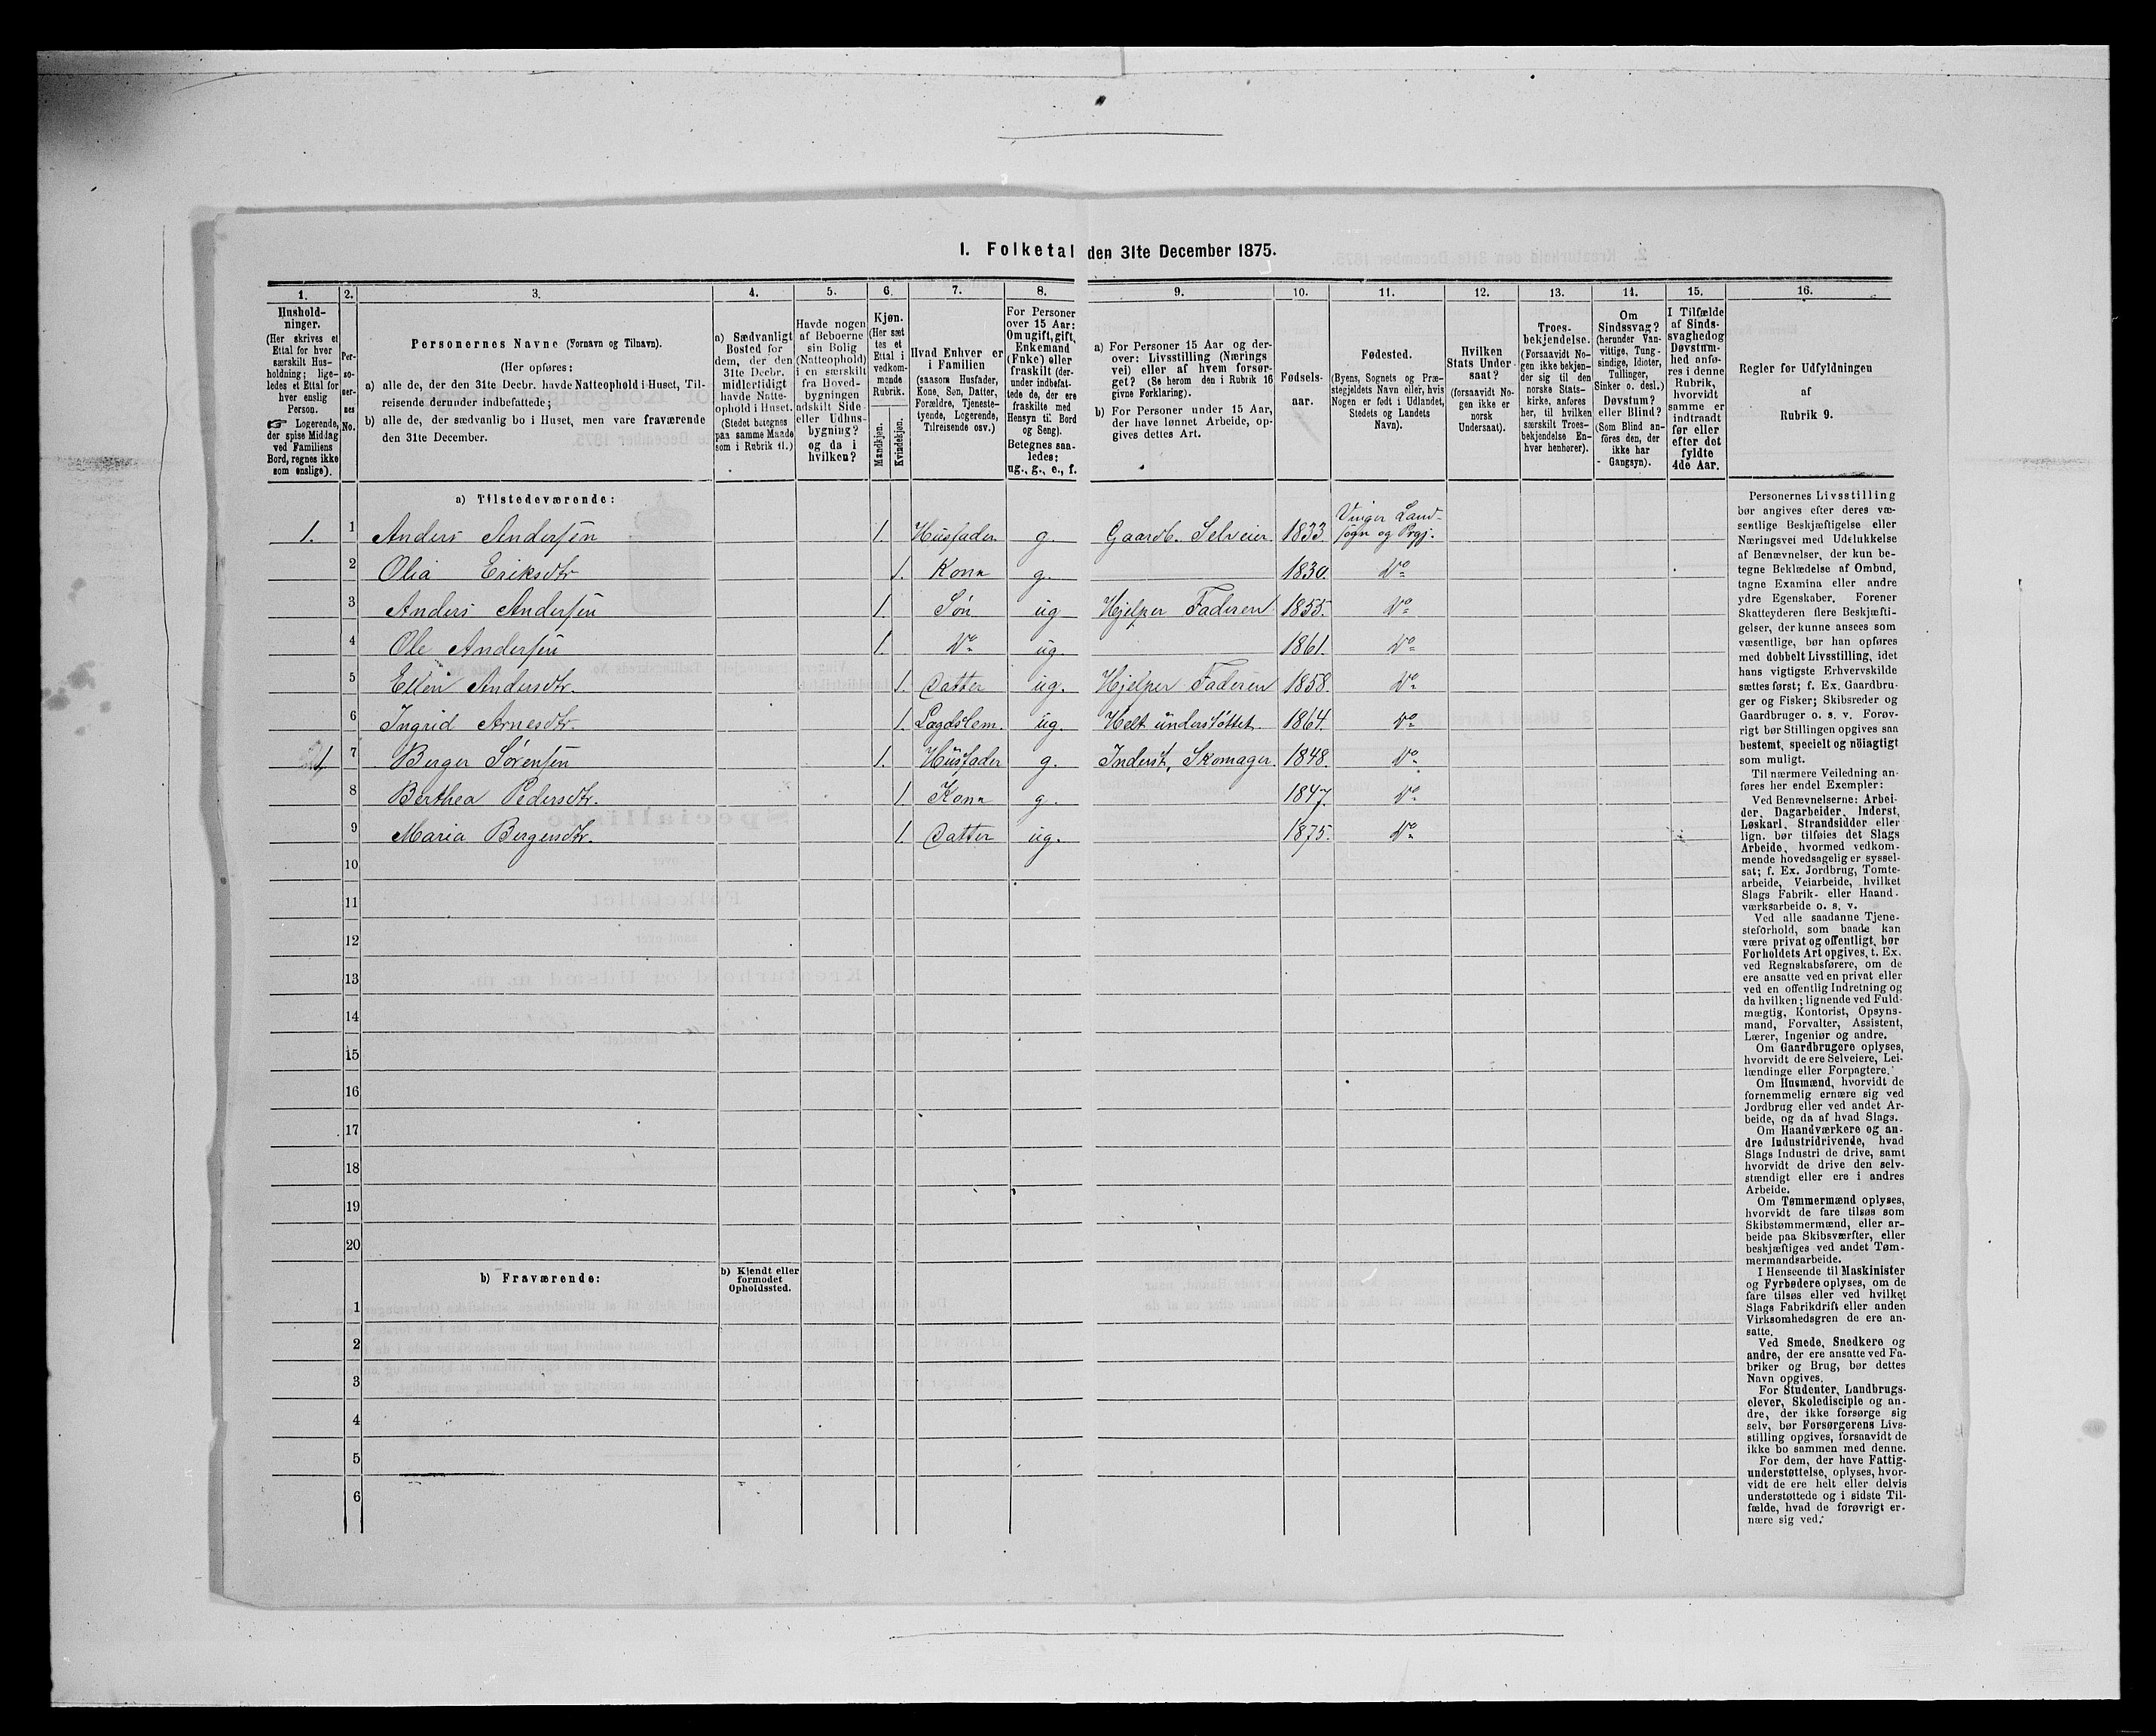 I. Folketal den 31te December 1875.
1. 2. 3. 4. 5. 6. 7. 8. 9. 10. 11. 12. 13. 14. 15. 16.
Hushold-
ninger.
(Her skrives et
Ettal for hver
særskilt Hus-
holdning; lige-
ledes et Ettal for
hver enslig
Person.
☞ Logerende,
der spise Middag
ved Familiens
Bord, regnes ikke
som enslige).
Per-
so-
ner-
nes
No.
Personernes Navne (Fornavn og Tilnavn).
(Her opføres:
a) alle de, der den 31te Decbr. havde Natteophold i Huset, Til-
reisende derunder indbefattede;
b) alle de, der sædvanlig bo i Huset, men vare fraværende
den 31te December.
a) Sædvanligt
Bosted for
dem, der den
31te Decbr.
midlertidigt
havde Natte-
ophold i Huset.
(Stedet betegnes
paa samme Maade
som i Rubrik 11.)
Havde nogen
af Beboerne
sin Bolig
(Natteophold)
i en særskilt
fra Hoved-
bygningen
adskilt Side-
eller Udhus-
bygning?
og da i
hvilken?
Kjøn.
(Her sæt
tes et
Ettal i
vedkom-
mende
Rubrik.
Mandkjøn.
Kvindekjøn.
Hvad Enhver er
i Familien
(saasom Husfader,
Kone, Søn, Datter,
Forældre, Tjeneste-
tyende, Logerende,
Tilreisende osv.)
For Personer
over 15 Aar:
Om ugift, gift,
Enkemand
(Enke) eller
fraskilt (der-
under indbefat-
tede de, der ere
fraskilte med
Hensyn til Bord
og Seng).
Betegnes saa-
ledes:
ug., g., e., f.
a) For Personer 15 Aar og der-
over: Livsstilling (Nærings
vei) eller af hvem forsør-
get? (Se herom den i Rubrik 16
givne Forklaring).
b) For Personer under 15 Aar,
der have lønnet Arbeide, op-
gives dettes Art.
Fødsels-
aar.
Fødested.
(Byens, Sognets og Præ-
stegjeldets Navn eller, hvis
Nogen er født i Udlandet,
Stedets og Landets
Navn).
Hvilken
Stats Under-
saat?
(forsaavidt No-
gen ikke er
norsk
Undersaat).
Troes-
bekjendelse.
(Forsaavidt No-
gen ikke bekjen-
der sig til den
norske Stats-
kirke, anføres
her, til hvilken
særskilt Troes-
bekjendelse En-
hver henhører).
Om
Sindssvag?
(herunder Van-
vittige, Tung-
sindige, Idioter,
Tullinger,
Sinker o. desl.)
Døvstum?
eller Blind?
(Som Blind an-
føres den, der
ikke har
Gangsyn).
I Tilfælde
af Sinds-
svaghed og
Døvstum-
hed anfø-
res i denne
Rubrik,
hvorvidt
samme er
indtraadt
før eller
efter det
fyldte
4de Aar.
Regler for Udfyldningen
af
Rubrik 9.
a) Tilstedeværende:
1. 1 Anders Andersen 1. Husfader g. Gaardb. Selveier 1833 Vinger Land-
sogn og Prgj.
2 Olia Eriksdtr 1. Kone g. 1830. Do
3 Anders Andersen 1. Søn ug Hjelper Faderen 1855. Do
4 Ole Andersen 1. Do ug. 1861. Do
5 Ellen Andersdtr. 1. Datter ug. Hjelper Faderen 1858. Do
6 Ingrid Arnesdtr. 1. Lægdslem. ug. Helt understøttet. 1864. Do
1 7 Berger Sørensen 1. Husfader g. Inderst, Skomager. 1848. Do
8 Berthea Pedersdtr. 1. Kone g. 1847. Do
9 Maria Bergersdtr. 1. Datter ug. 1875. Do
10
11
12
13
14
15
16
17
18
19
20
b) Fraværende:
b) Kjendt eller
formodet
Opholdssted.
1
2
3
4
5
6
Personernes Livsstilling
bør angives efter deres væ-
sentlige Beskjæftigelse eller
Næringsvei med Udelukkelse
af Benævnelser, der kun be-
tegne Beklædelse af Ombud,
tagne Examina eller andre
ydre Egenskaber. Forener
Skatteyderen flere Beskjæfti-
gelser, der kunne ansees som
væsentlige, bør han opføres
med dobbelt Livsstilling, idet
hans vigtigste Erhvervskilde
sættes først; f. Ex. Gaardbru-
ger og Fisker; Skibsreder og
Gaardbruger o. s. v. Forøv-
rigt bør Stillingen opgives saa
bestemt, specielt og nöiagtigt
som muligt.
Til nærmere Veiledning an-
føres her endel Exempler:
Ved Benævnelserne: Arbei-
der, Dagarbeider, Inderst,
Løskarl, Strandsidder eller
lign. bør tilføies det Slags
Arbeide, hvormed vedkom-
mende hovedsagelig er syssel-
sat; f. Ex. Jordbrug, Tomte-
arbeide, Veiarbeide, hvilket
Slags Fabrik- eller Haand-
værksarbeide o. s. v.
Ved alle saadanne Tjene-
steforhold, som baade kan
være privat og offentligt, bør
Forholdets Art opgives, t. Ex.
ved Regnskabsførere, om de
ere ansatte ved en privat eller
ved en offentlig Indretning og
da hvilken; lignende ved Fuld-
mægtig, Kontorist, Opsyns-
mand, Forvalter, Assistent,
Lærer, Ingeniør og andre.
Om Gaardbrugere oplyses,
hvorvidt de ere Selveiere, Lei-
lændinge eller Forpagtere.
Om Husmænd, hvorvidt de
fornemmelig ernære sig ved
Jordbrug eller ved andet Ar-
beide, og da af hvad Slags.
Om Haandværkere og an-
dre Industridrivende, hvad
Slags Industri de drive, samt
hvorvidt de drive den selv-
stændigt eller ere i andres
Arbeide.
Om Tømmermænd oplyses,
hvorvidt de fare tilsøs som
Skibstømmermænd, eller ar-
beide paa Skibsværfter, eller
beskjæftiges ved andet Tøm-
mermandsarbeide.
I Henseende til Maskinister
og Fyrbødere oplyses, om de
fare tilsøs eller ved hvilket
Slags Fabrikdrift eller anden
Virksomhedsgren de ere an-
satte.
Ved Smede, Snedkere og
andre, der ere ansatte ved Fa-
briker og Brug, bør dettes
Navn opgives.
For Studenter, Landbrugs-
elever, Skoledisciple og an-
dre, der ikke forsørge sig
selv, bør Forsørgerens Livs-
stilling opgives, forsaavidt de
ikke bo sammen med denne.
For dem, der have Fattig-
understøttelse, oplyses, hvor-
vidt de ere helt eller delvis
understøttede og i sidste Til-
fælde, hvad de forøvrigt er-
nære sig ved.